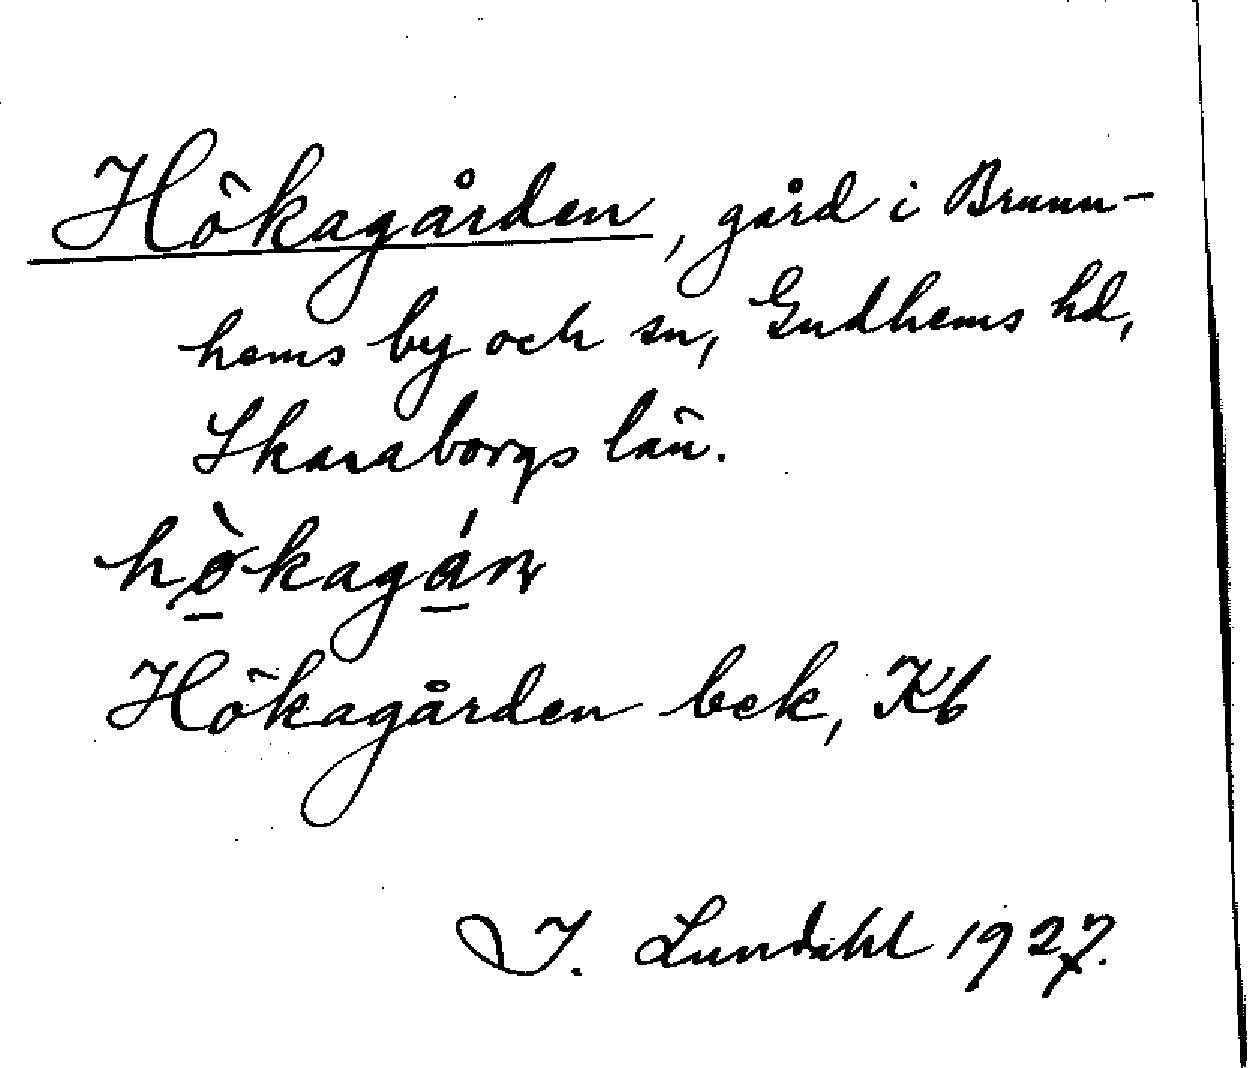 Hökagården, gård i Brunn-
hems by och sn, Gudhems hd,
Skaraborgs län.
Hökagården bek, Kb
I. Lundahl 1927.